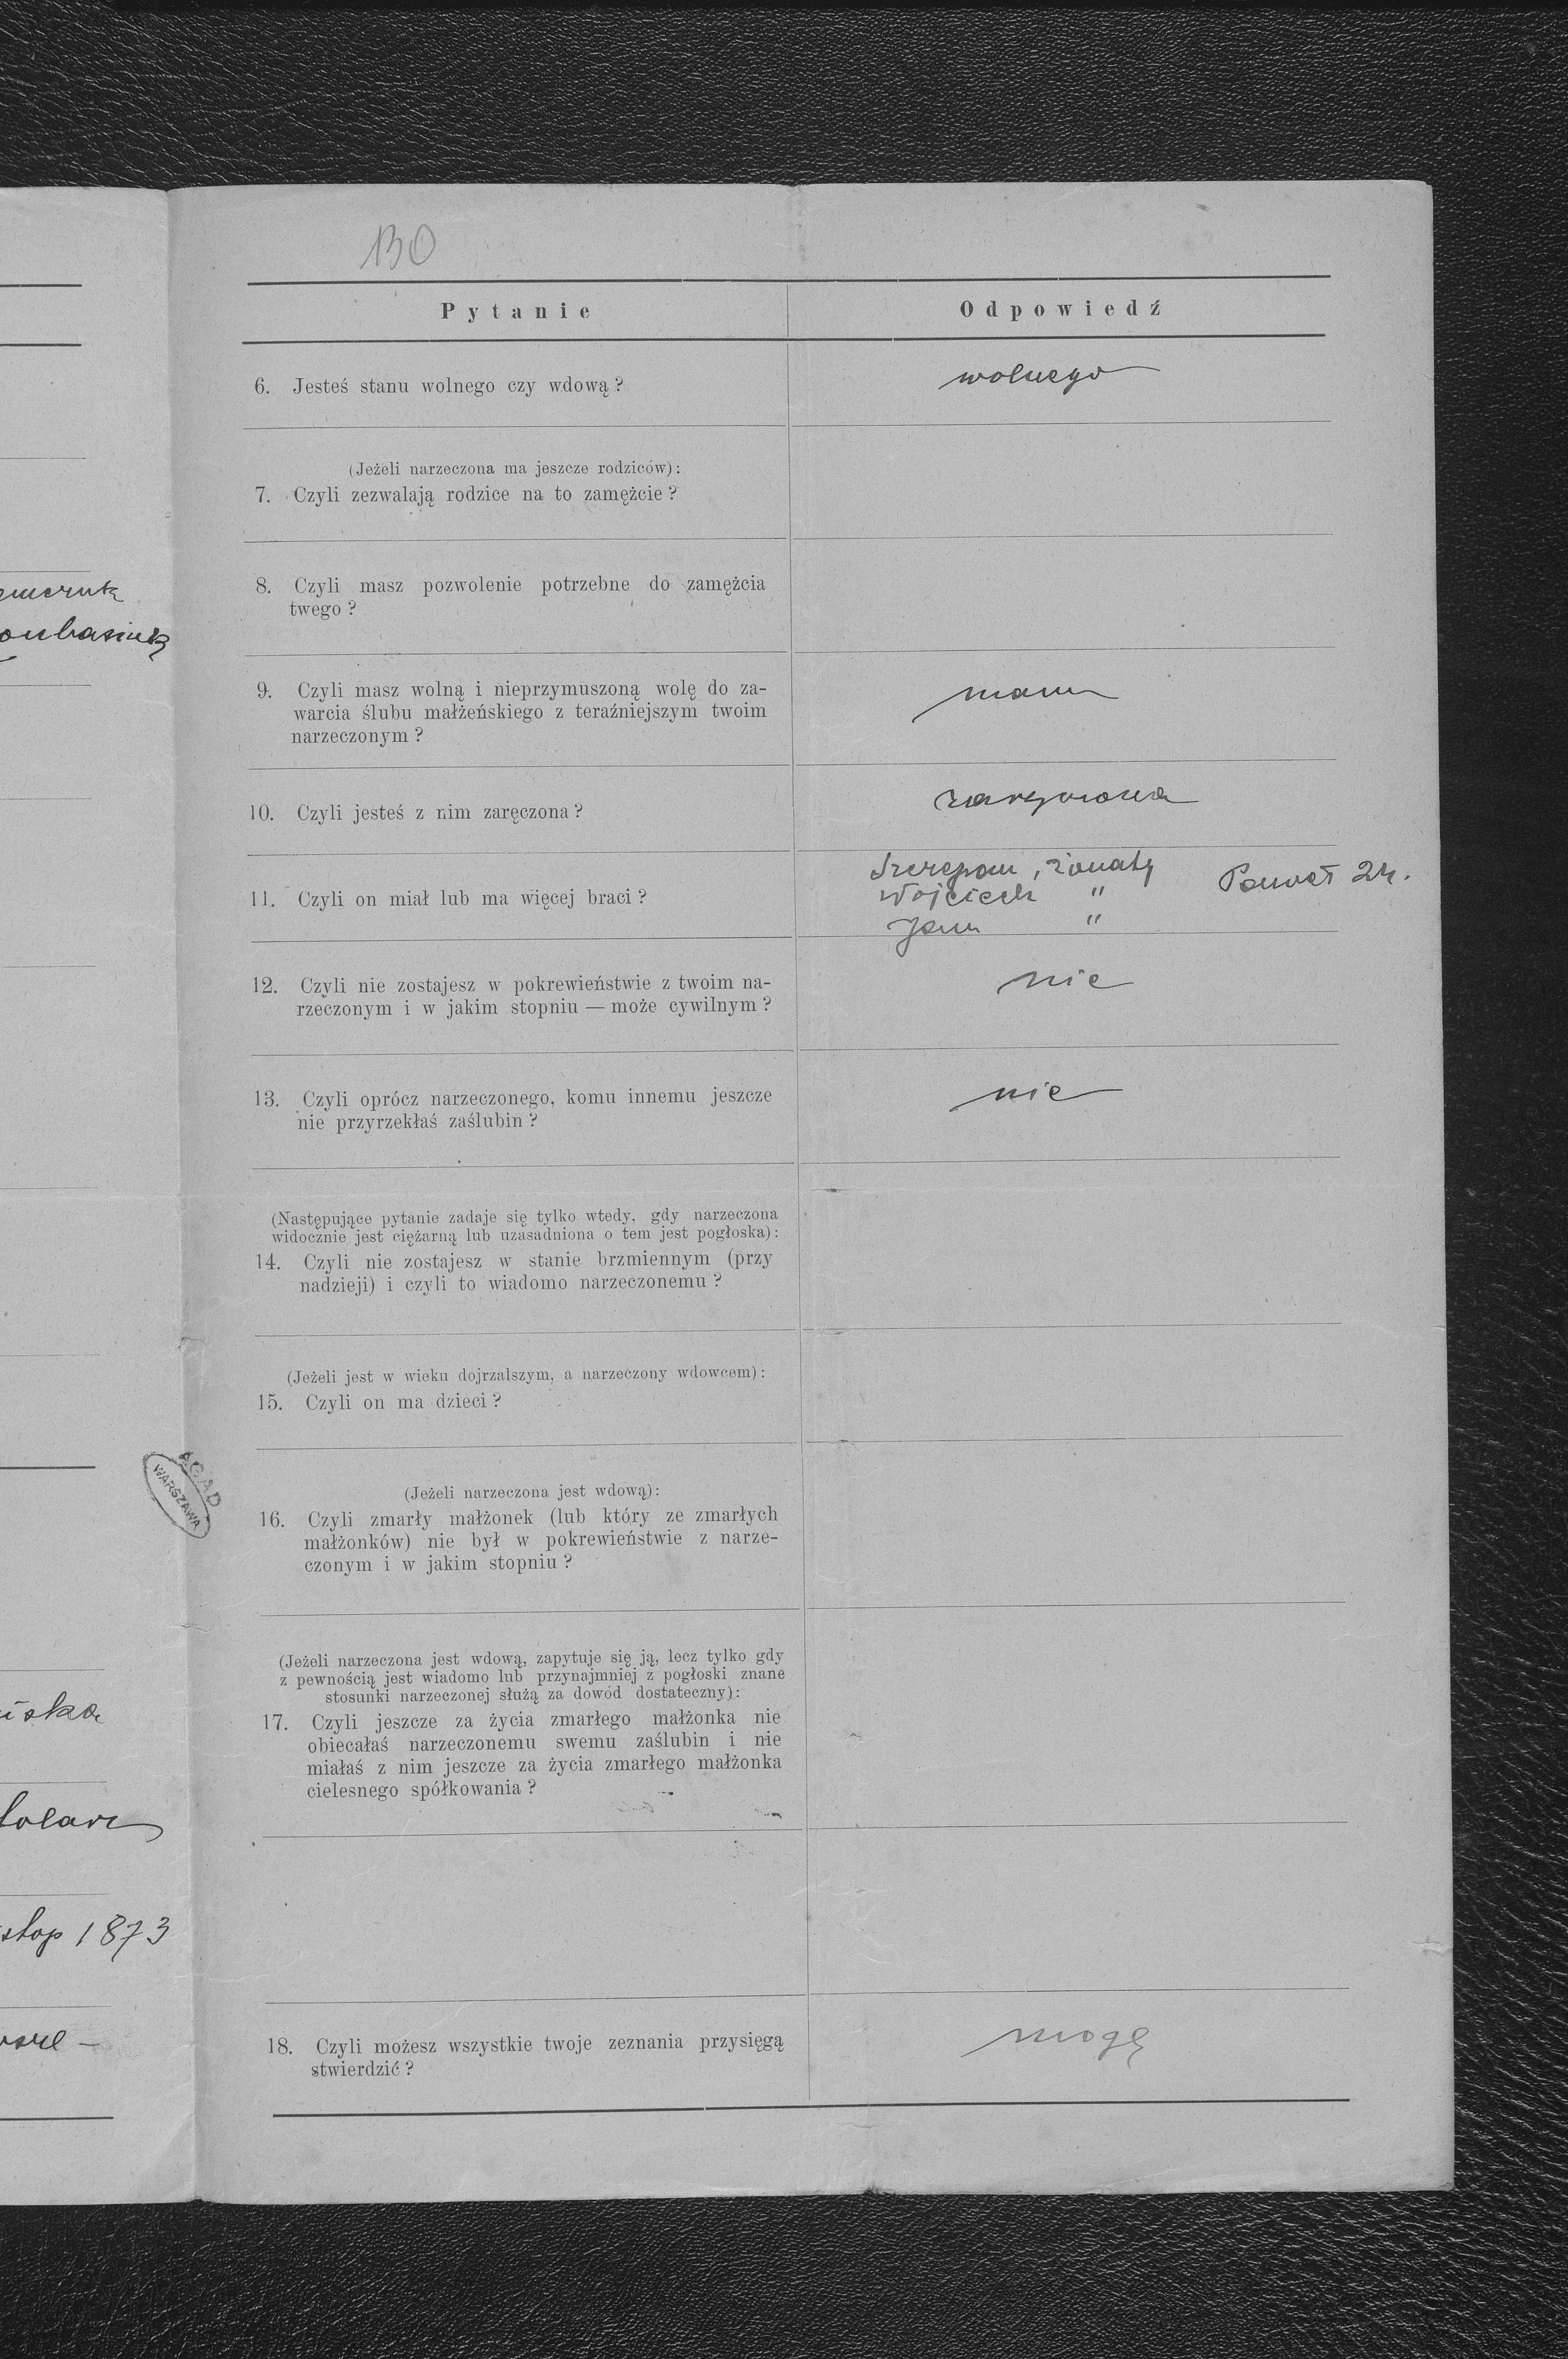 130
Pytanie Odpowiedź
6. Jesteś stanu wolnego czy wdową? wolnego
(Jeżeli narzeczona ma jeszcze rodziców):
7. Czyli zezwalają rodzice na to zamężcie?
8. Czyli masz pozwolenie potrzebne do zamężcia
twego?
9. Czyli masz wolną i nieprzymuszoną wolę do za-
warcia ślubu małżeńskiego z teraźniejszym twoim
narzeczonym?
mam
10. Czyli jesteś z nim zaręczona? zaręczona
11. Czyli on miał lub ma więcej braci?
Szczepan, żonaty
Wojciech "
Jan "
Paweł 24.
12. Czyli nie zostajesz w pokrewieństwie z twoim na-
rzeczonym i w jakim stopniu — może cywilnym?
nie
13. Czyli oprócz narzeczonego, komu innemu jeszcze
nie przyrzekłaś zaślubin?
nie
(Następujące pytanie zadaje się tylko wtedy, gdy narzeczona
widocznie jest ciężarną lub uzasadniona o tem jest pogłoska):
14. Czyli nie zostajesz w stanie brzmiennym (przy
nadzieji) i czyli to wiadomo narzeczonemu?
(Jeżeli jest w wieku dojrzalszym, a narzeczony wdowcem):
15. Czyli on ma dzieci?
(Jeżeli narzeczona jest wdową):
16. Czyli zmarły małżonek (lub który ze zmarłych
małżonków) nie był w pokrewieństwie z narze-
czonym i w jakim stopniu?
(Jeżeli narzeczona jest wdową, zapytuje się ją, lecz tylko gdy
z pewnością jest wiadomo lub przynajmniej z pogłoski znane
stosunki narzeczonej służą za dowód dostateczny):
17. Czyli jeszcze za życia zmarłego małżonka nie
obiecałaś narzeczonemu swemu zaślubin i nie
miałaś z nim jeszcze za życia zmarłego małżonka
cielesnego spółkowania?
18. Czyli możesz wszystkie twoje zeznania przysięgą
stwierdzić?
mogę
AGAD
WARSZAWA
1873